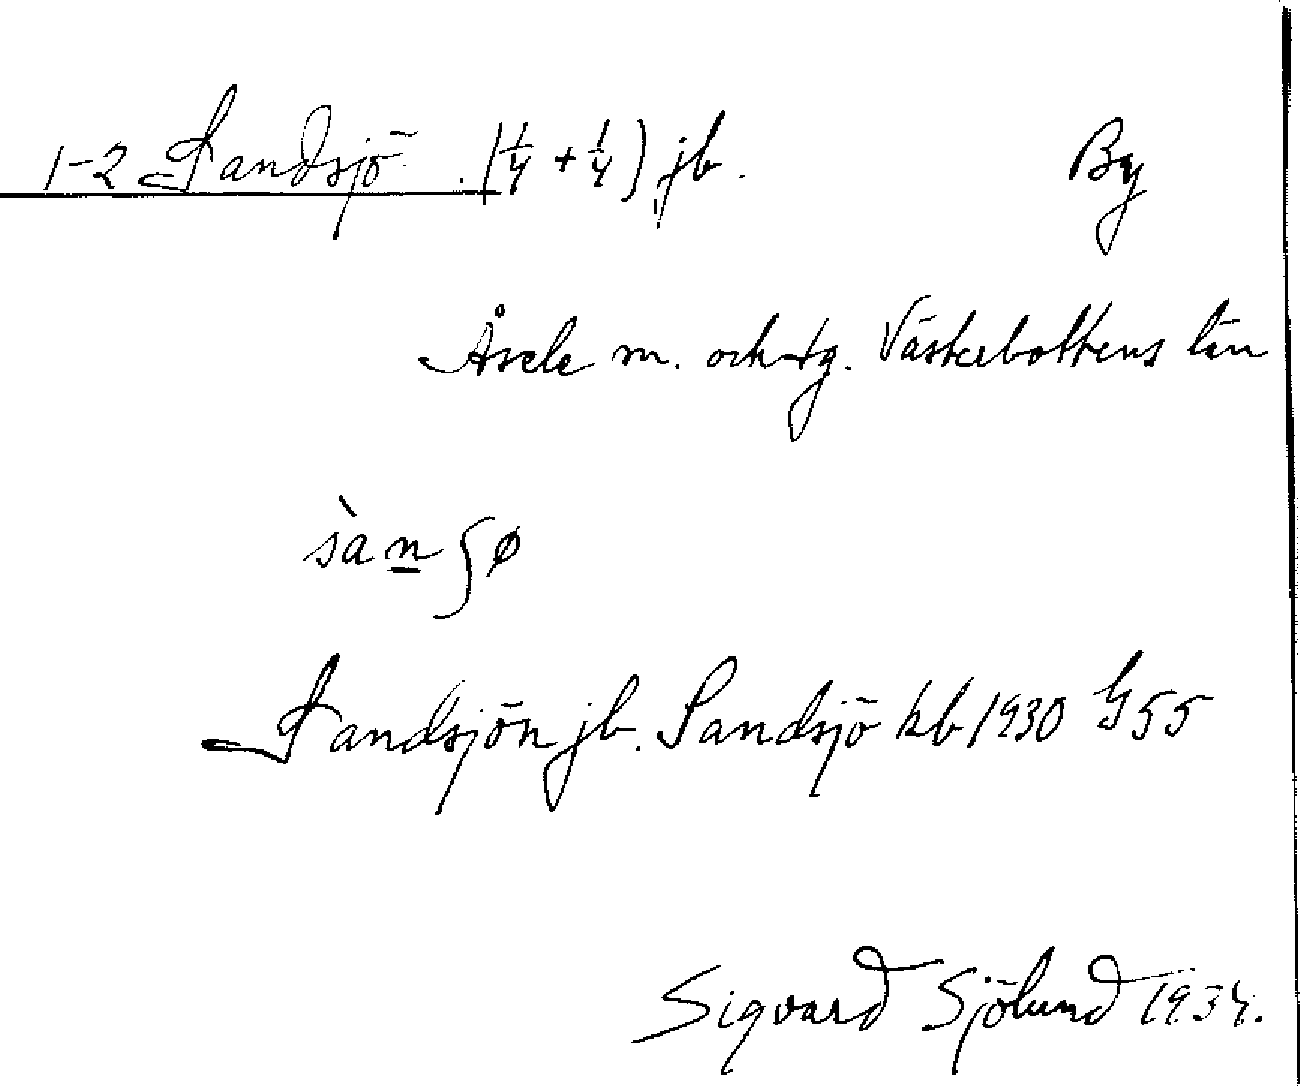 1-2 Sandsjö (1/4 + 1/4) jb. By
Åsele m. och tg. Västerbottens län
sàn̲ʃø
Sandsjön jb. Sandsjö kb 1930 G55
Sigvard Sjölund 1934.